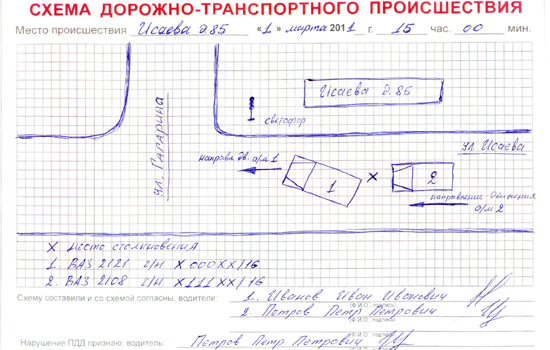 СХЕМА ДОРОЖНО-ТРАНСПОРТНОГО ПРОИСШЕСТВИЯ
Место происшествия Исаева д.85 «1» марта 2011 г. 15 час. 00 мин.
Исаева д.85
светофор
ул. Гагарина
ул. Исаева
направл. дв. а/м 1
1
X
2
направление движения
а/м 2
X место столкновения
1. ВАЗ 2121 г/н Х000ХХ/16
2. ВАЗ 2108 г/н Х111ХХ/16
Схему составили и со схемой согласны, водители: 1. Иванов Иван Иванович
(Ф.И.О., подпись)
2 Петров Петр Петрович
(Ф.И.О., подпись)
Нарушение ПДД признаю, водитель: Петров Петр Петрович